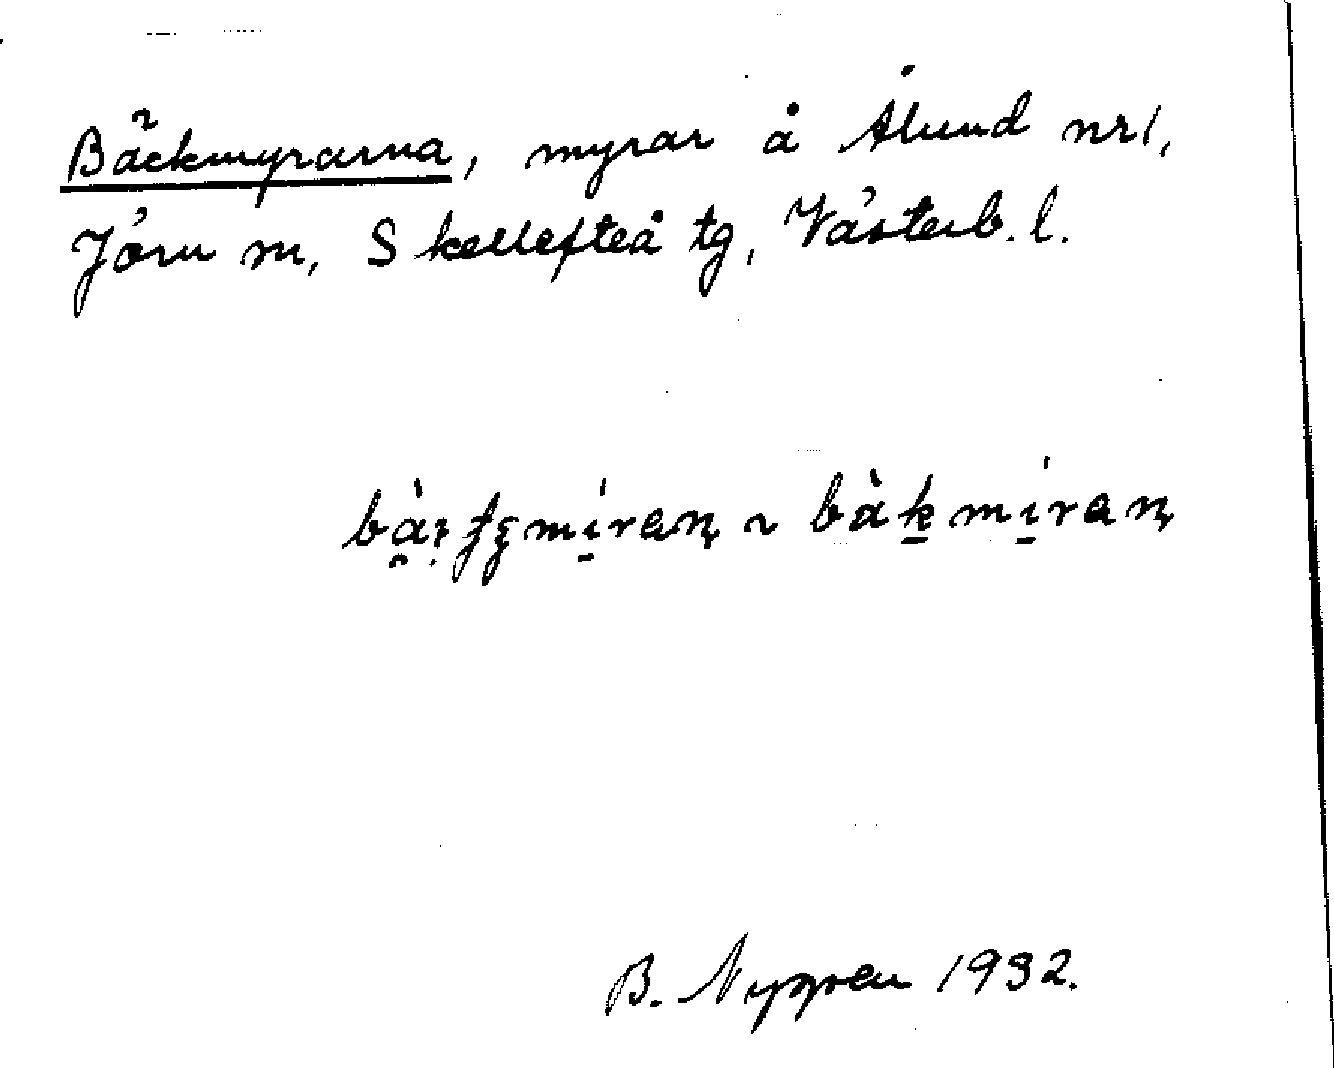 Bäckmyrarna, myrar å Ålund nr 1,
Jörn sn, Skellefteå tg, Västerb. l.
bäkmiran
B. Nygren 1932.